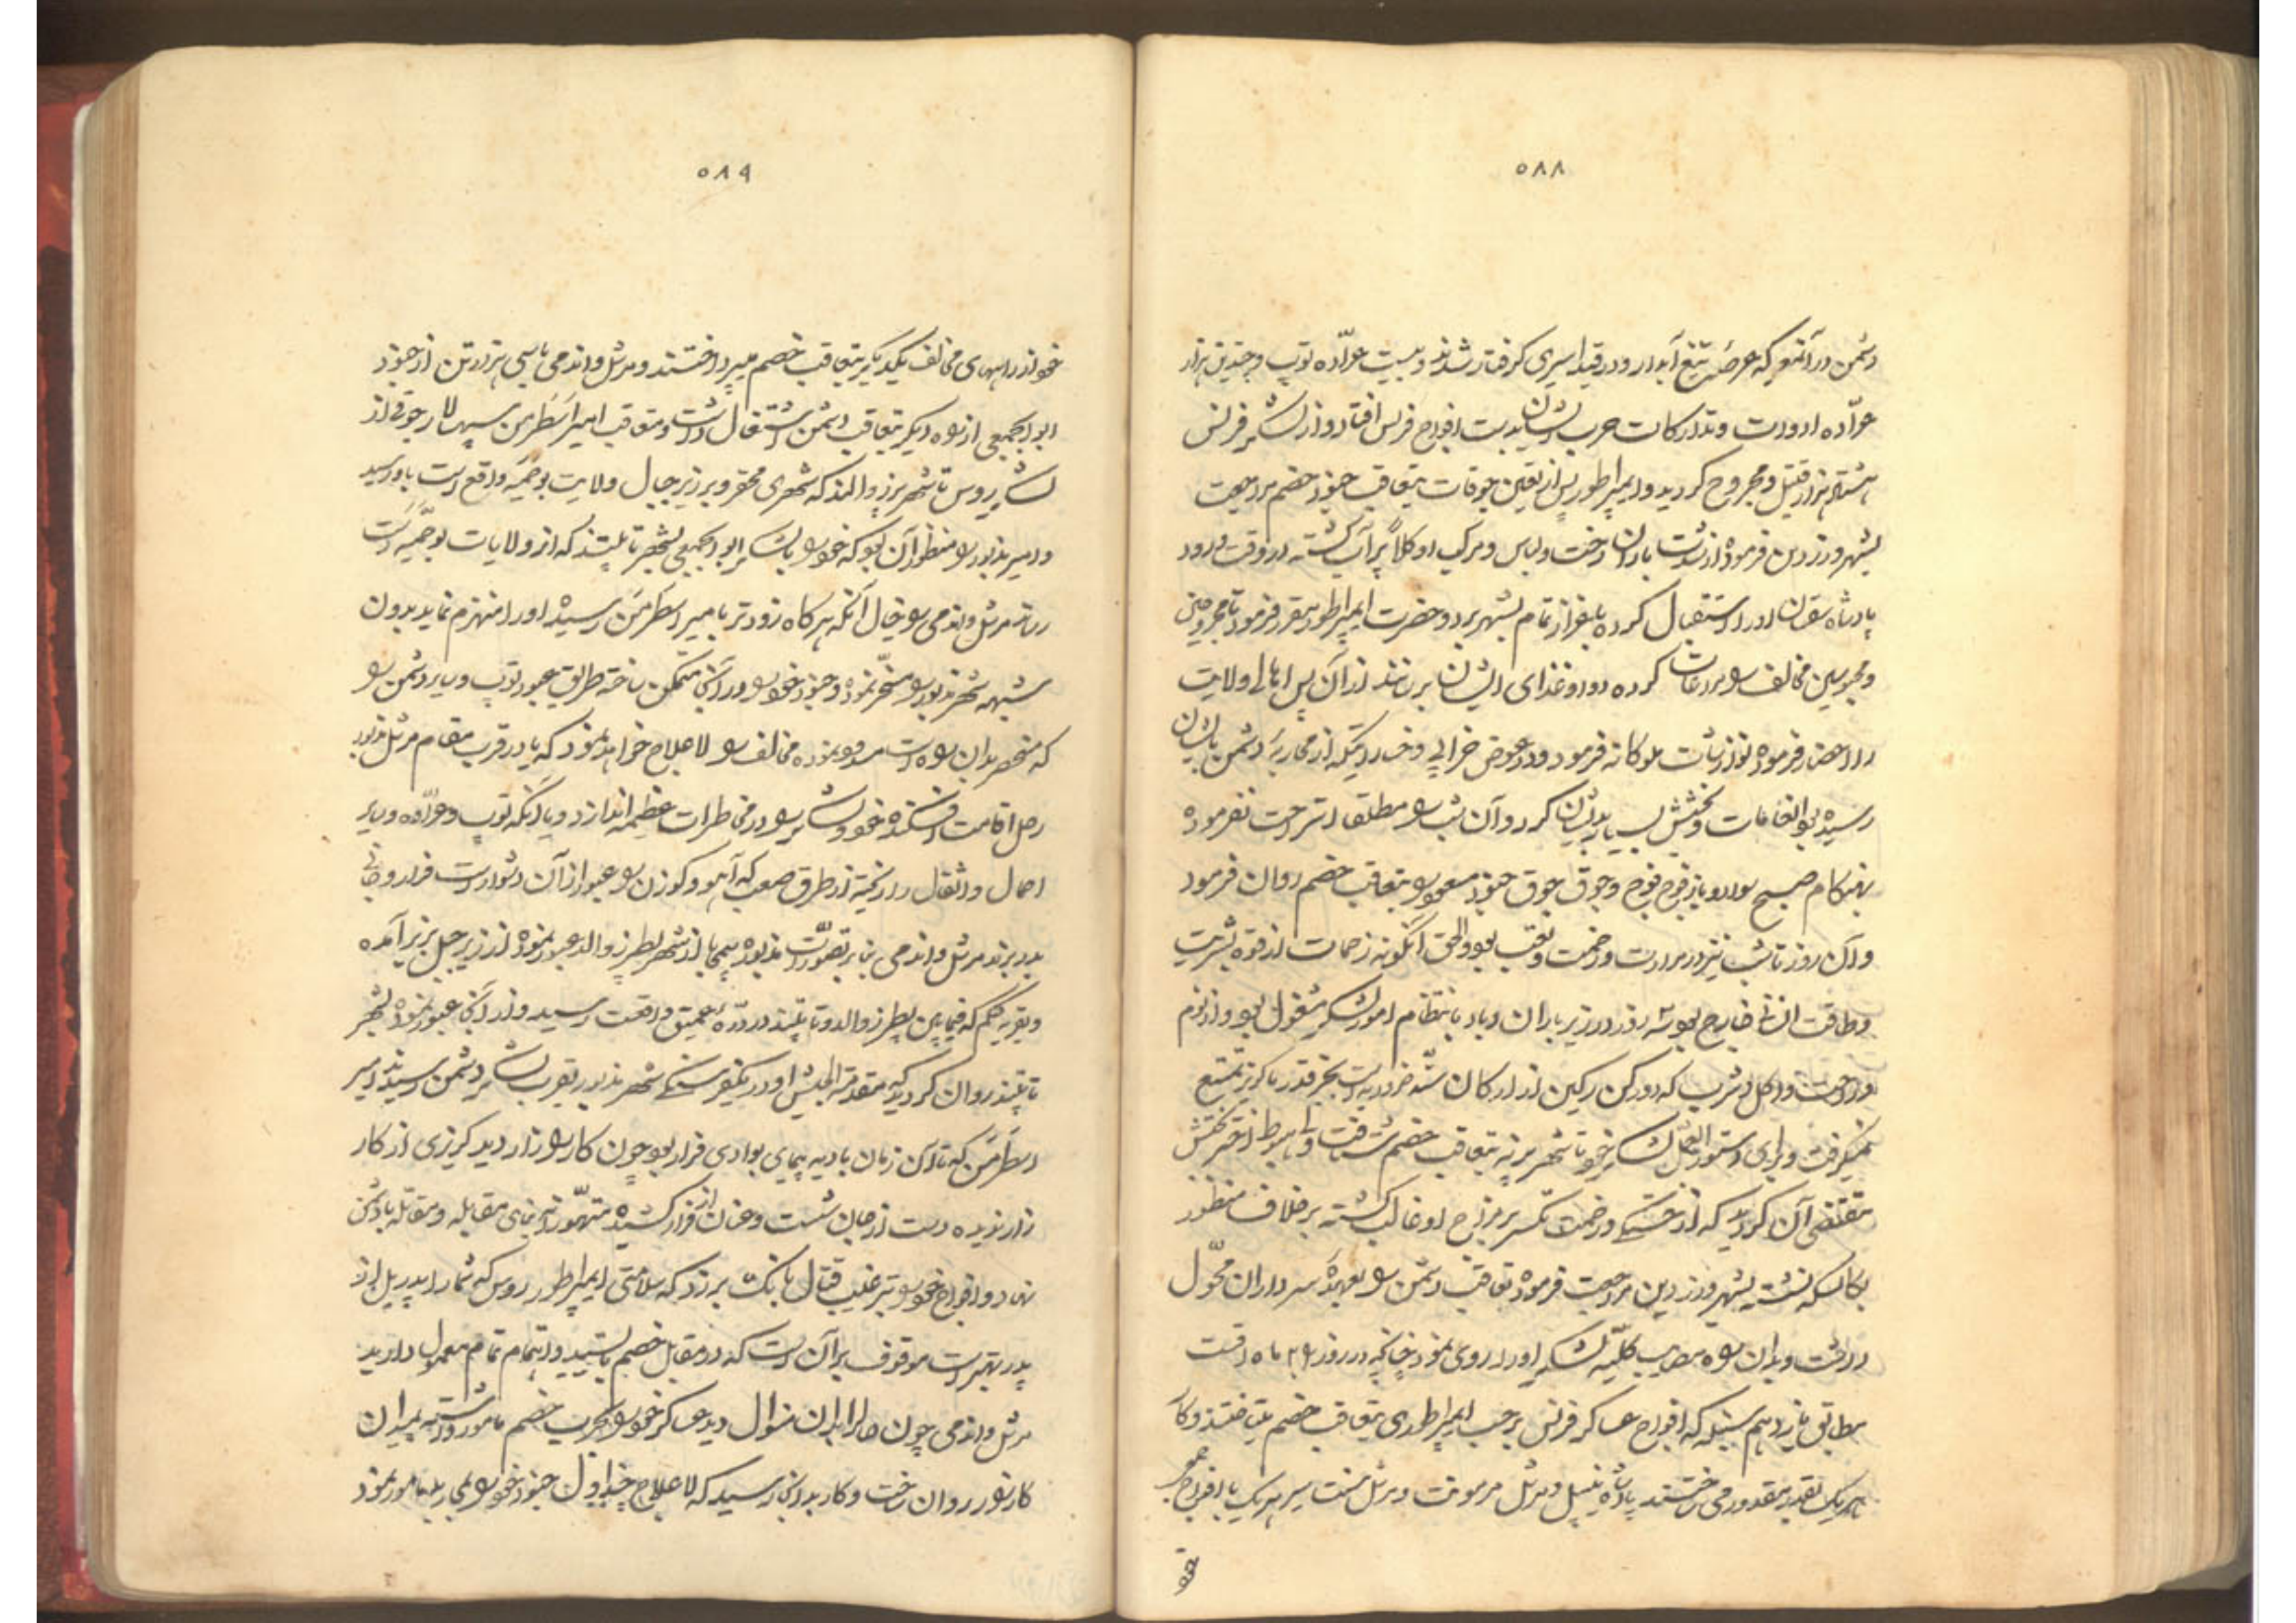 ۵۸۸
دشمن در آنروز که عرضه تیغ آبدار و در قید اسیری گرفتار شدند و بیست عرّاده توپ و چندین هزار
عرّاده ادوات و تدارکات حرب ایشان بدست افواج فرانس افتاد و از لشکر فرانس
هشت هزار قتیل و مجروح گردید و ایمپراطور پس از تعیین جوقات بتعاقب جنود خصم مراجعت
بشهر درزدن فرموده از شدت باران رخت و لباس و مرکب او کلاً پر آب گشته در وقت ورود
پادشاه سقسان او را استقبال کرده باعزاز تمام بشهر برد و حضرت ایمپراطور مقرر فرمود تا مجروحین
و محبوسین مخالف را مراعات کرده دوا و غذای ایشان برسانند از آن پس اهالی ولایت
را احضار فرموده نوازشات ملوکانه فرمود و در عوض خرابی و خساراتیکه از محاربهٔ دشمن بایشان
رسیده بود انعامات و بخشش بسیار بدیشان کرد و آن شب را مطلقا استراحت نفرموده
بهنگام صبح سوار و باز فوج فوج و جوق جوق جنود مسعود را بتعاقب خصم روان فرمود
و آن روز تا شب نیز در مرارت و زحمت و تعب بود والحق اینگونه زحمات از قوه بشریت
و طاقت انسانی خارج بود سه روز در زیر باران و باد بانتظام امور لشکر مشغول بود و از نوم
و راحت و اکل و شرب که دو رکن رکین از ارکان ستّه ضروریه است بجز قدر ناگزیر تمتع
نمیگرفت و برای دستورالعمل لشکر خود تا شهر پرنه بتعاقب خصم شتافت و هبوط اختر بختش
مقتضی آن گردید که از خستگی و زحمت تکسر بر مزاج او غالب گشته بر خلاف منظور
بکالسکه نشسته بشهر درزدن مراجعت فرموده تعاقب دشمن را بعهدهٔ سرداران محوّل
داشت و بدان واسطه مصایب کلیّه لشکر او را روی نمود چنانچه در روز ۲۹ ماه اقست
مطابق یازدهم سنبله که افواج عساکر فرانس برحسب امر ایمپراطوری بتعاقب خصم میتاختند و کار
هر یک بقدر مقدور می ساختند پادشاه نیپل و مرشل مرمونت و مرشل سنت سیر هر یک با افواج
۵۸۹
خود از راههای مخالف یکدیگر بتعاقب خصم میپرداختند و مرشل واندمی با سی هزار تن از جنود
ابوابجمعی از راه دیگر بتعاقب دشمن اشتغال داشت و متعاقب امیر اسطرمن سپهسالار جوقی از
لشکر روس تا شهر پترزوالد که شهری محقر و بر زیر جبال ولایت بوخمیه واقع است باو رسید
و امیر مذبور را منظور آن بود که خود را با لشکر ابوابجمعی بشهر تاپلیتز که از ولایات بوخمیه است
رساند مرشل واندمی را خیال آنکه هر گاه زودتر بامیر اسطرمن رسیده او را منهزم نماید بدون
شبهه شهر مذبور را مسخّر نموده و جنود خود را در آنجا متمکن ساخته طریق عبور توپ و سایر دشمن را
که منحصر بدان راه است مسدود نموده مخالف را لاعلاج خواهد نمود که یا در قرب مقام مرشل مذبور
رحل اقامت افکنده خود و لشکر را در مخاطرات عظیمه اندازد و یا آنکه توپ و عرّاده و سایر
احمال و اثقال را ریخته از طرق صعب که آهو و گوزن را عبور از آن دشوار است فرار و جانی
بدر برند مرشل واندمی بنا بر تصوّرات مذبوره بیمحابا از شهر پطرزوالد عبور نموده از زیر جبل بزیر آمده
و بقریه کلم که فیمابین پطرزوالد و تاپلیتز در درّهٔ عمیق واقعست رسید و از آنجا عبور نموده بشهر
تاپلیتز روان گردید که مقدمة الجیش او در یکفرسنگی شهر مذبور بقرب لشکر دشمن رسیدند امیر
اسطرمن که تا آن زمان بادیه پیمای بوادی فرار بود چون کار را زار دید گریزی از کار
زار ندیده دست از جان شست و عنان از فرار کشیده متهوّرانه بنای مقابله و مقاتله با دشمن
نهاد و افواج خود را ترغیب قتال بانگ برزد که سلامتی ایمپراطور روس که شما را بدل از
پدر بهتر است موقوف بر آن است که در مقابل خصم بایستید و اهتمام تمام معمول دارید
مرشل واندمی چون حال را بدان منوال دید عساکر خود را بحرب خصم مامور داشته بمیدان
کارزار روان ساخت و کار بدانجا رسید که لاعلاج چند اول جنود خود را بمحاربه مامور نمود